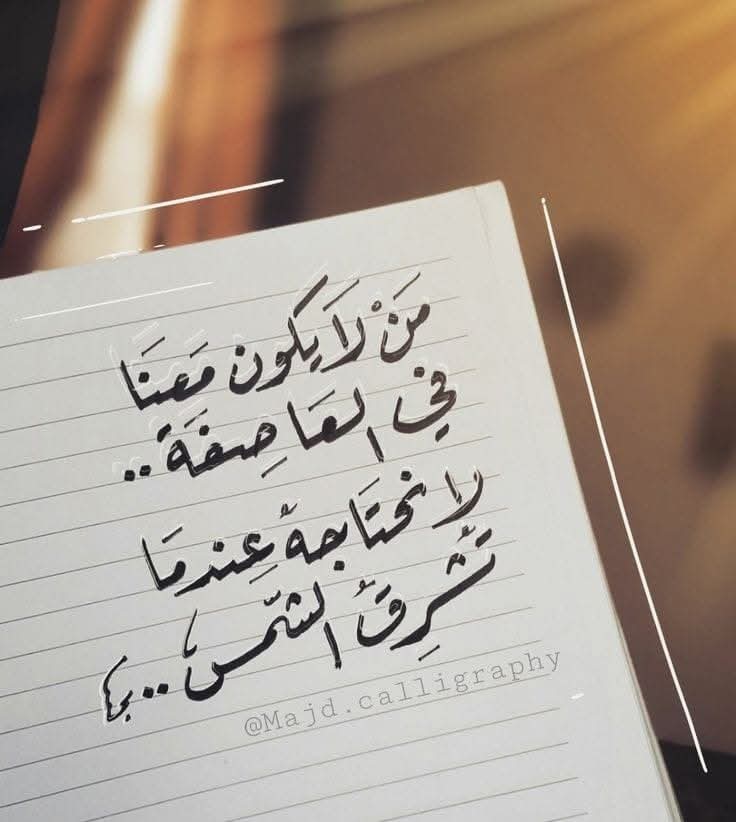 مَنْ لَا يَكون مَعنَا
في العَاصِفَة ..
لا نحتَاجهُ عِندمَا
تَشْرِقُ الشّمس ..
@Majd.calligraphy